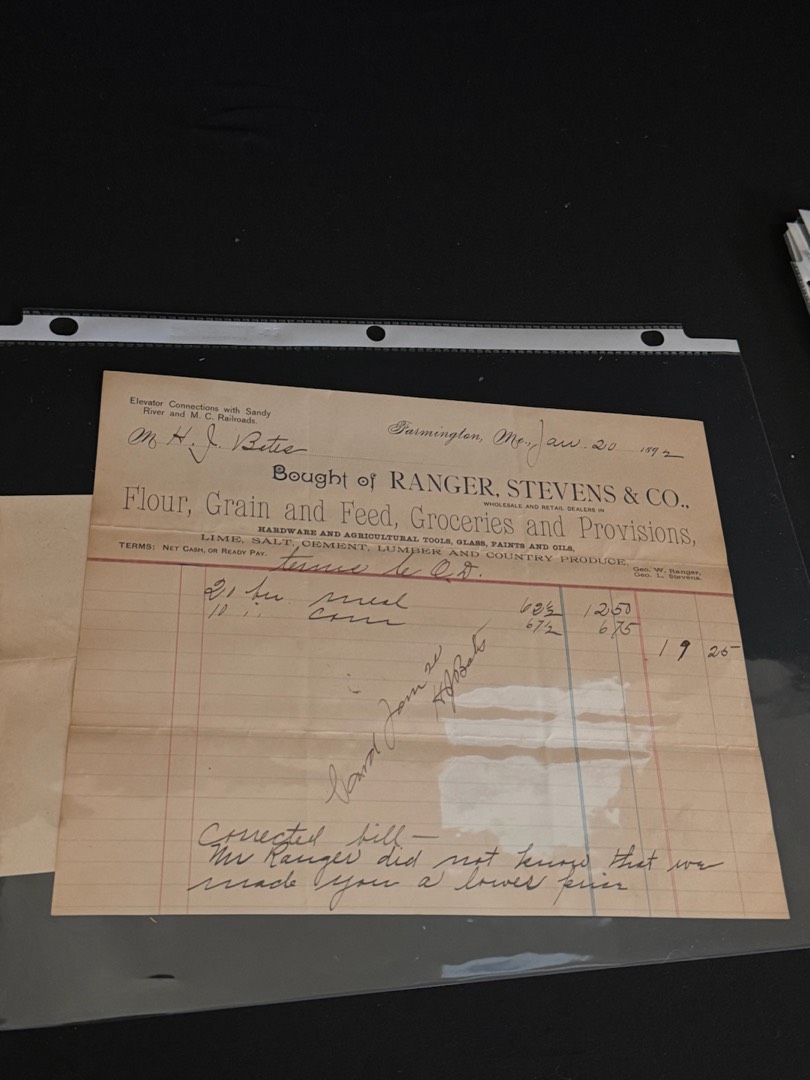 Elevator Connections with Sandy
River and M. C. Railroads.
Farmington, Me., Jan. 20 1892
M H. J. Bates
Bought of RANGER, STEVENS & CO.,
WHOLESALE AND RETAIL DEALERS IN
Flour, Grain and Feed, Groceries and Provisions,
HARDWARE AND AGRICULTURAL TOOLS, GLASS, PAINTS AND OILS,
LIME, SALT, CEMENT, LUMBER AND COUNTRY PRODUCE.
TERMS: NET CASH, OR READY PAY.
Geo. W. Ranger,
Geo. L. Stevens.
terms C. O. D.
20 bu meal 62½ 12 50
10 " corn 67½ 6 75
19 25
Jan 22
HJ Bates
Corrected bill—
Mr Ranger did not know that we
made you a lower price